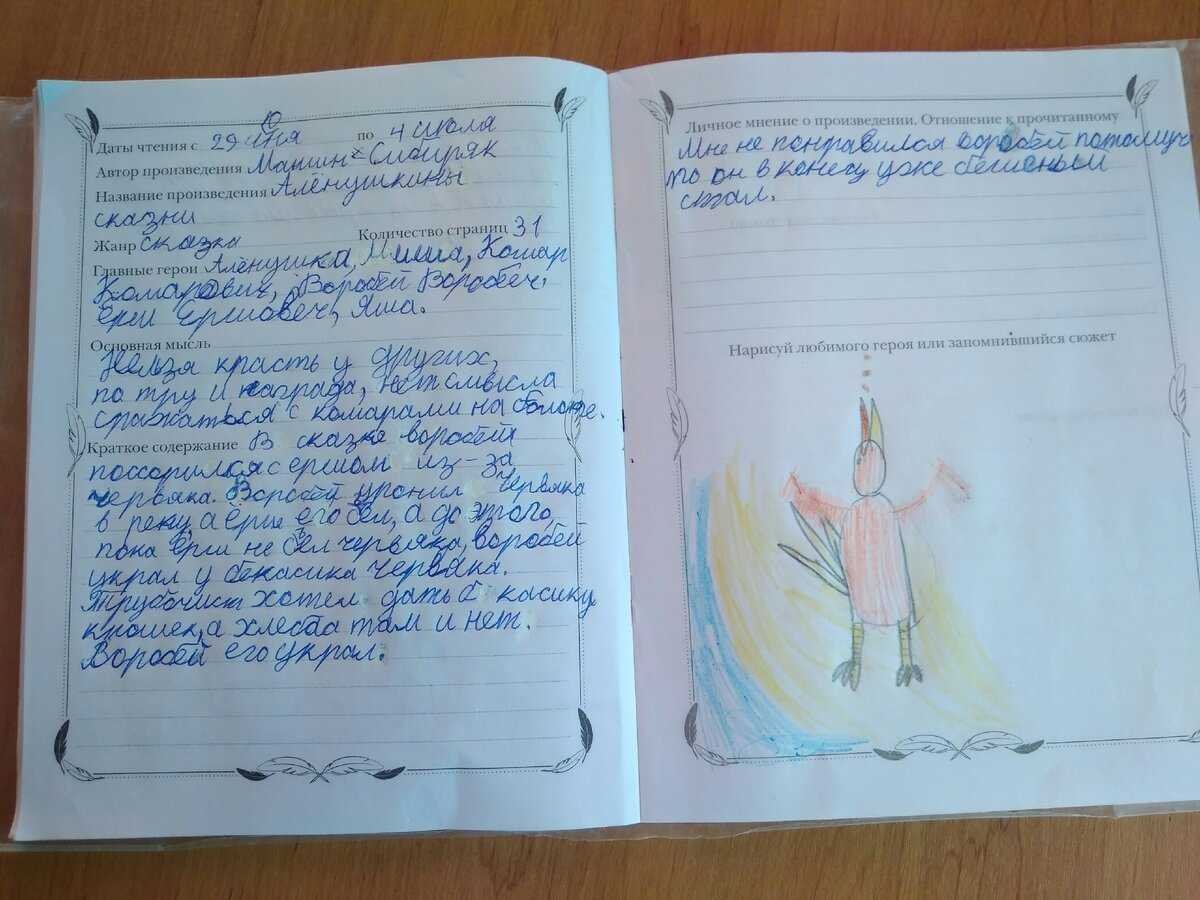 Даты чтения с 29 июня по 4 июля
Автор произведения Мамин-Сибиряк
Название произведения Алёнушкины
сказки
Жанр сказка Количество страниц 31
Главные герои Алёнушка, Миша, Комар
Комарович, Воробей Воробеч.
Ёрш Ершовеч, Яша.
Основная мысль
Нельзя красть у других,
по тру и награда, нет смысла
сражаться с комарами на болоте.
Краткое содержание В сказке воробей
поссорился с ершом из-за
червяка. Воробей уронил червяка
в реку, а ёрш его ъел, а до этого,
пока ёрш не ъел червяка, воробей
украл у бекасика червяка.
Трубочист хотел дать бекасику
крошек, а хлеба там и нет.
Воробей его украл.
Личное мнение о произведении. Отношение к прочитанному
Мне не понравился воробей потомуч
то он в конец уже бешеный
стал.
Нарисуй любимого героя или запомнившийся сюжет